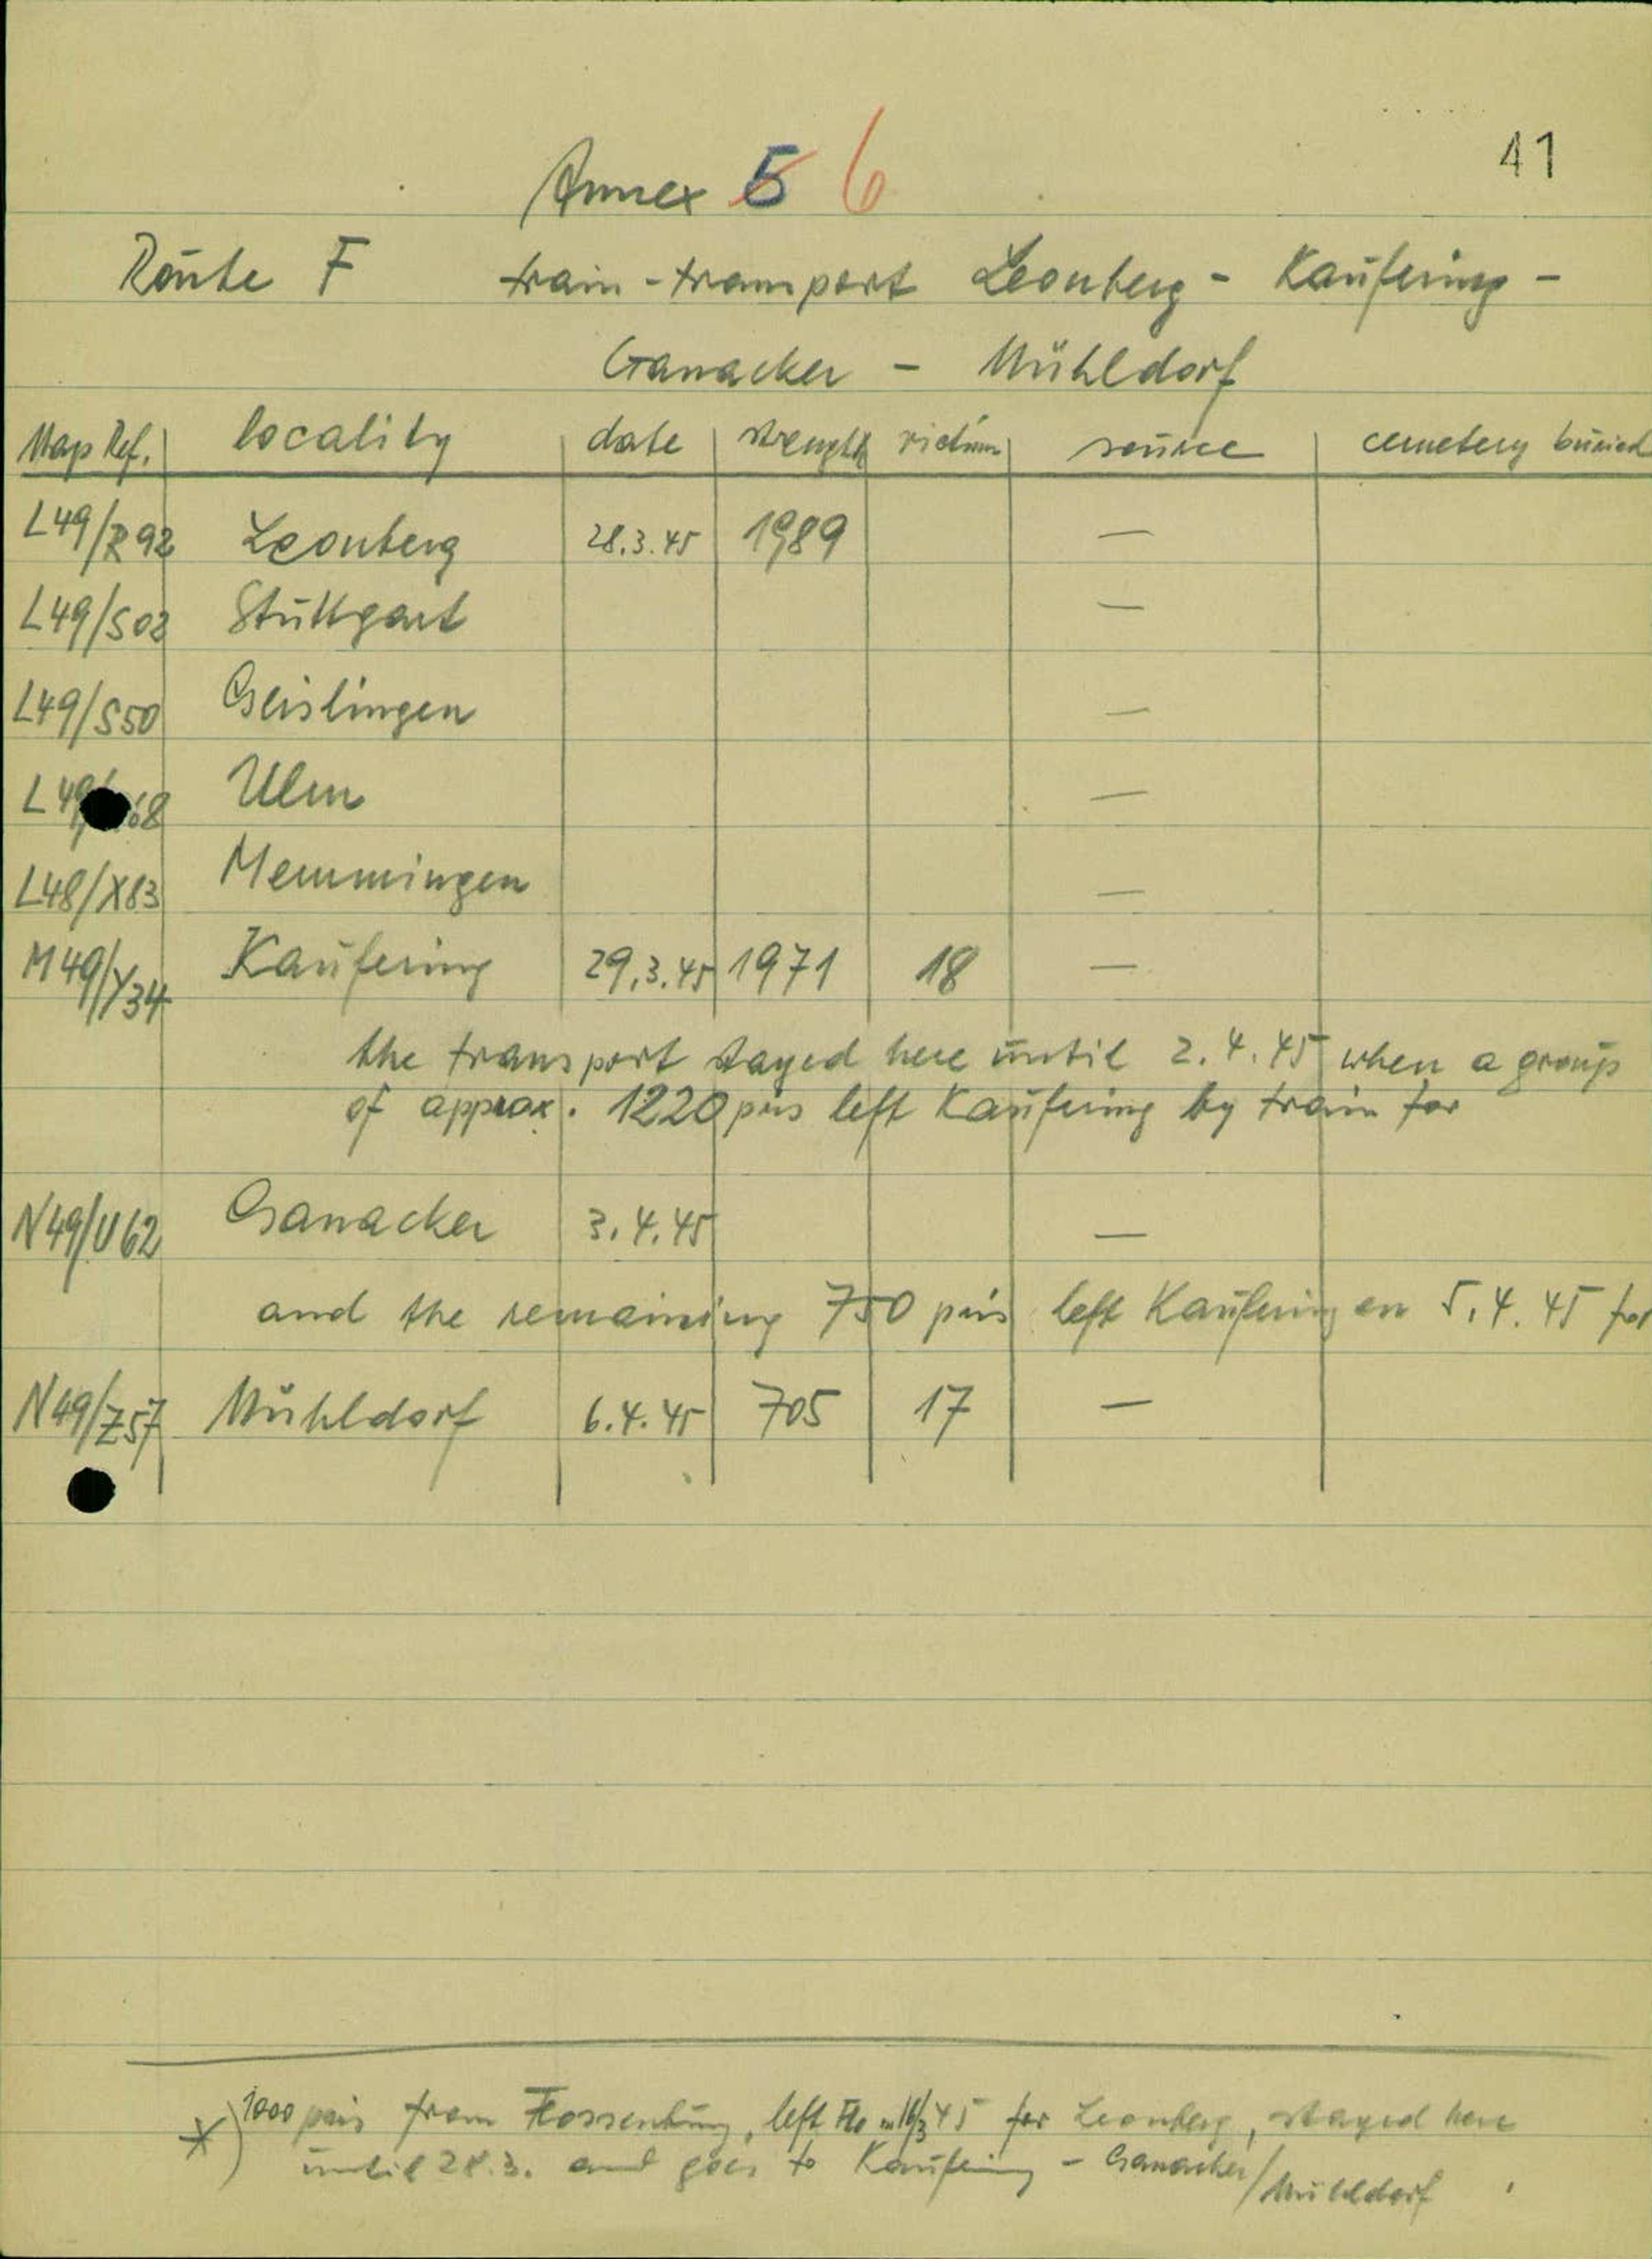 41
Annex 5 6
Route F train-transport Leonberg - Kaufering -
Ganacker - Mühldorf
Map Ref. locality date strenght victims source cemetery buried
L49/R92 Leonberg 28.3.45 1989 —
L49/S02 Stuttgart —
L49/S50 Geislingen —
L49 68 Ulm —
L48/X83 Memmingen —
M49/Y34 Kaufering 29.3.45 1971 18 —
the transport stayed here until 2.4.45 when a group
of approx. 1220 pris left Kaufering by train for
N49/U62 Ganacker 3.4.45 —
and the remaining 750 pris left Kaufering on 5.4.45 for
N49/Z57 Mühldorf 6.4.45 705 17 —
*) 1000 pris from Flossenbürg, left Flo on 16/3 45 for Leonberg, stayed here
until 28.3. and goes to Kaufering - Ganacker/Mühldorf